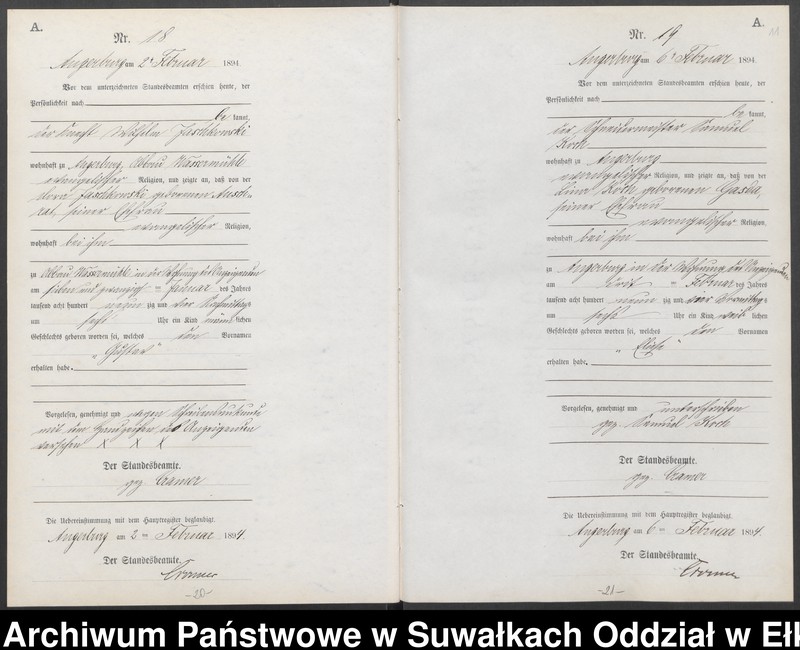 A.
Nr. 18
Angerburg am 2ten Februar 1894.
Vor dem unterzeichneten Standesbeamten erschien heute, der
Persönlichkeit nach
be kannt,
der Knecht Wilhelm Jaschkowski
wohnhaft zu Angerburg, Abbau Wassermühle
evangelischer Religion, und zeigte an, daß von der
Jaschkowski geborenen
seiner Ehefrau
evangelischer Religion,
wohnhaft bei ihm
zu Abbau Wassermühle in der Wohnung des Anzeigenden
am sieben und zwanzigsten Januar des Jahres
tausend acht hundert neun zig und vier Nachmittags
um Uhr ein Kind männlichen
Geschlechts geboren worden sei, welches den Vornamen
"Gustav"
erhalten habe.
Vorgelesen, genehmigt und wegen Schreibensunkunde
mit dem Handzeichen des Anzeigenden
versehen X X X
Der Standesbeamte.
gez. Cramer
Die Uebereinstimmung mit dem Hauptregister beglaubigt.
Angerburg am 2ten Februar 1894.
Der Standesbeamte.
Cramer
-20-
A.
11
Nr. 19
Angerburg am 6ten Februar 1894.
Vor dem unterzeichneten Standesbeamten erschien heute, der
Persönlichkeit nach
be kannt,
der Schneidermeister Samuel
Koch
wohnhaft zu Angerburg
evangelischer Religion, und zeigte an, daß von der
Lina Koch geborenen
seiner Ehefrau
evangelischer Religion,
wohnhaft bei ihm
zu Angerburg in der Wohnung des Anzeigenden
am dritten Februar des Jahres
tausend acht hundert neun zig und vier Vormittags
um sechs Uhr ein Kind weiblichen
Geschlechts geboren worden sei, welches den Vornamen
erhalten habe.
Vorgelesen, genehmigt und unterschrieben
gez. Samuel Koch
Der Standesbeamte.
gez. Cramer
Die Uebereinstimmung mit dem Hauptregister beglaubigt.
Angerburg am 6ten Februar 1894.
Der Standesbeamte.
Cramer
-21-
Archiwum Państwowe w Suwałkach Oddział w Ełk